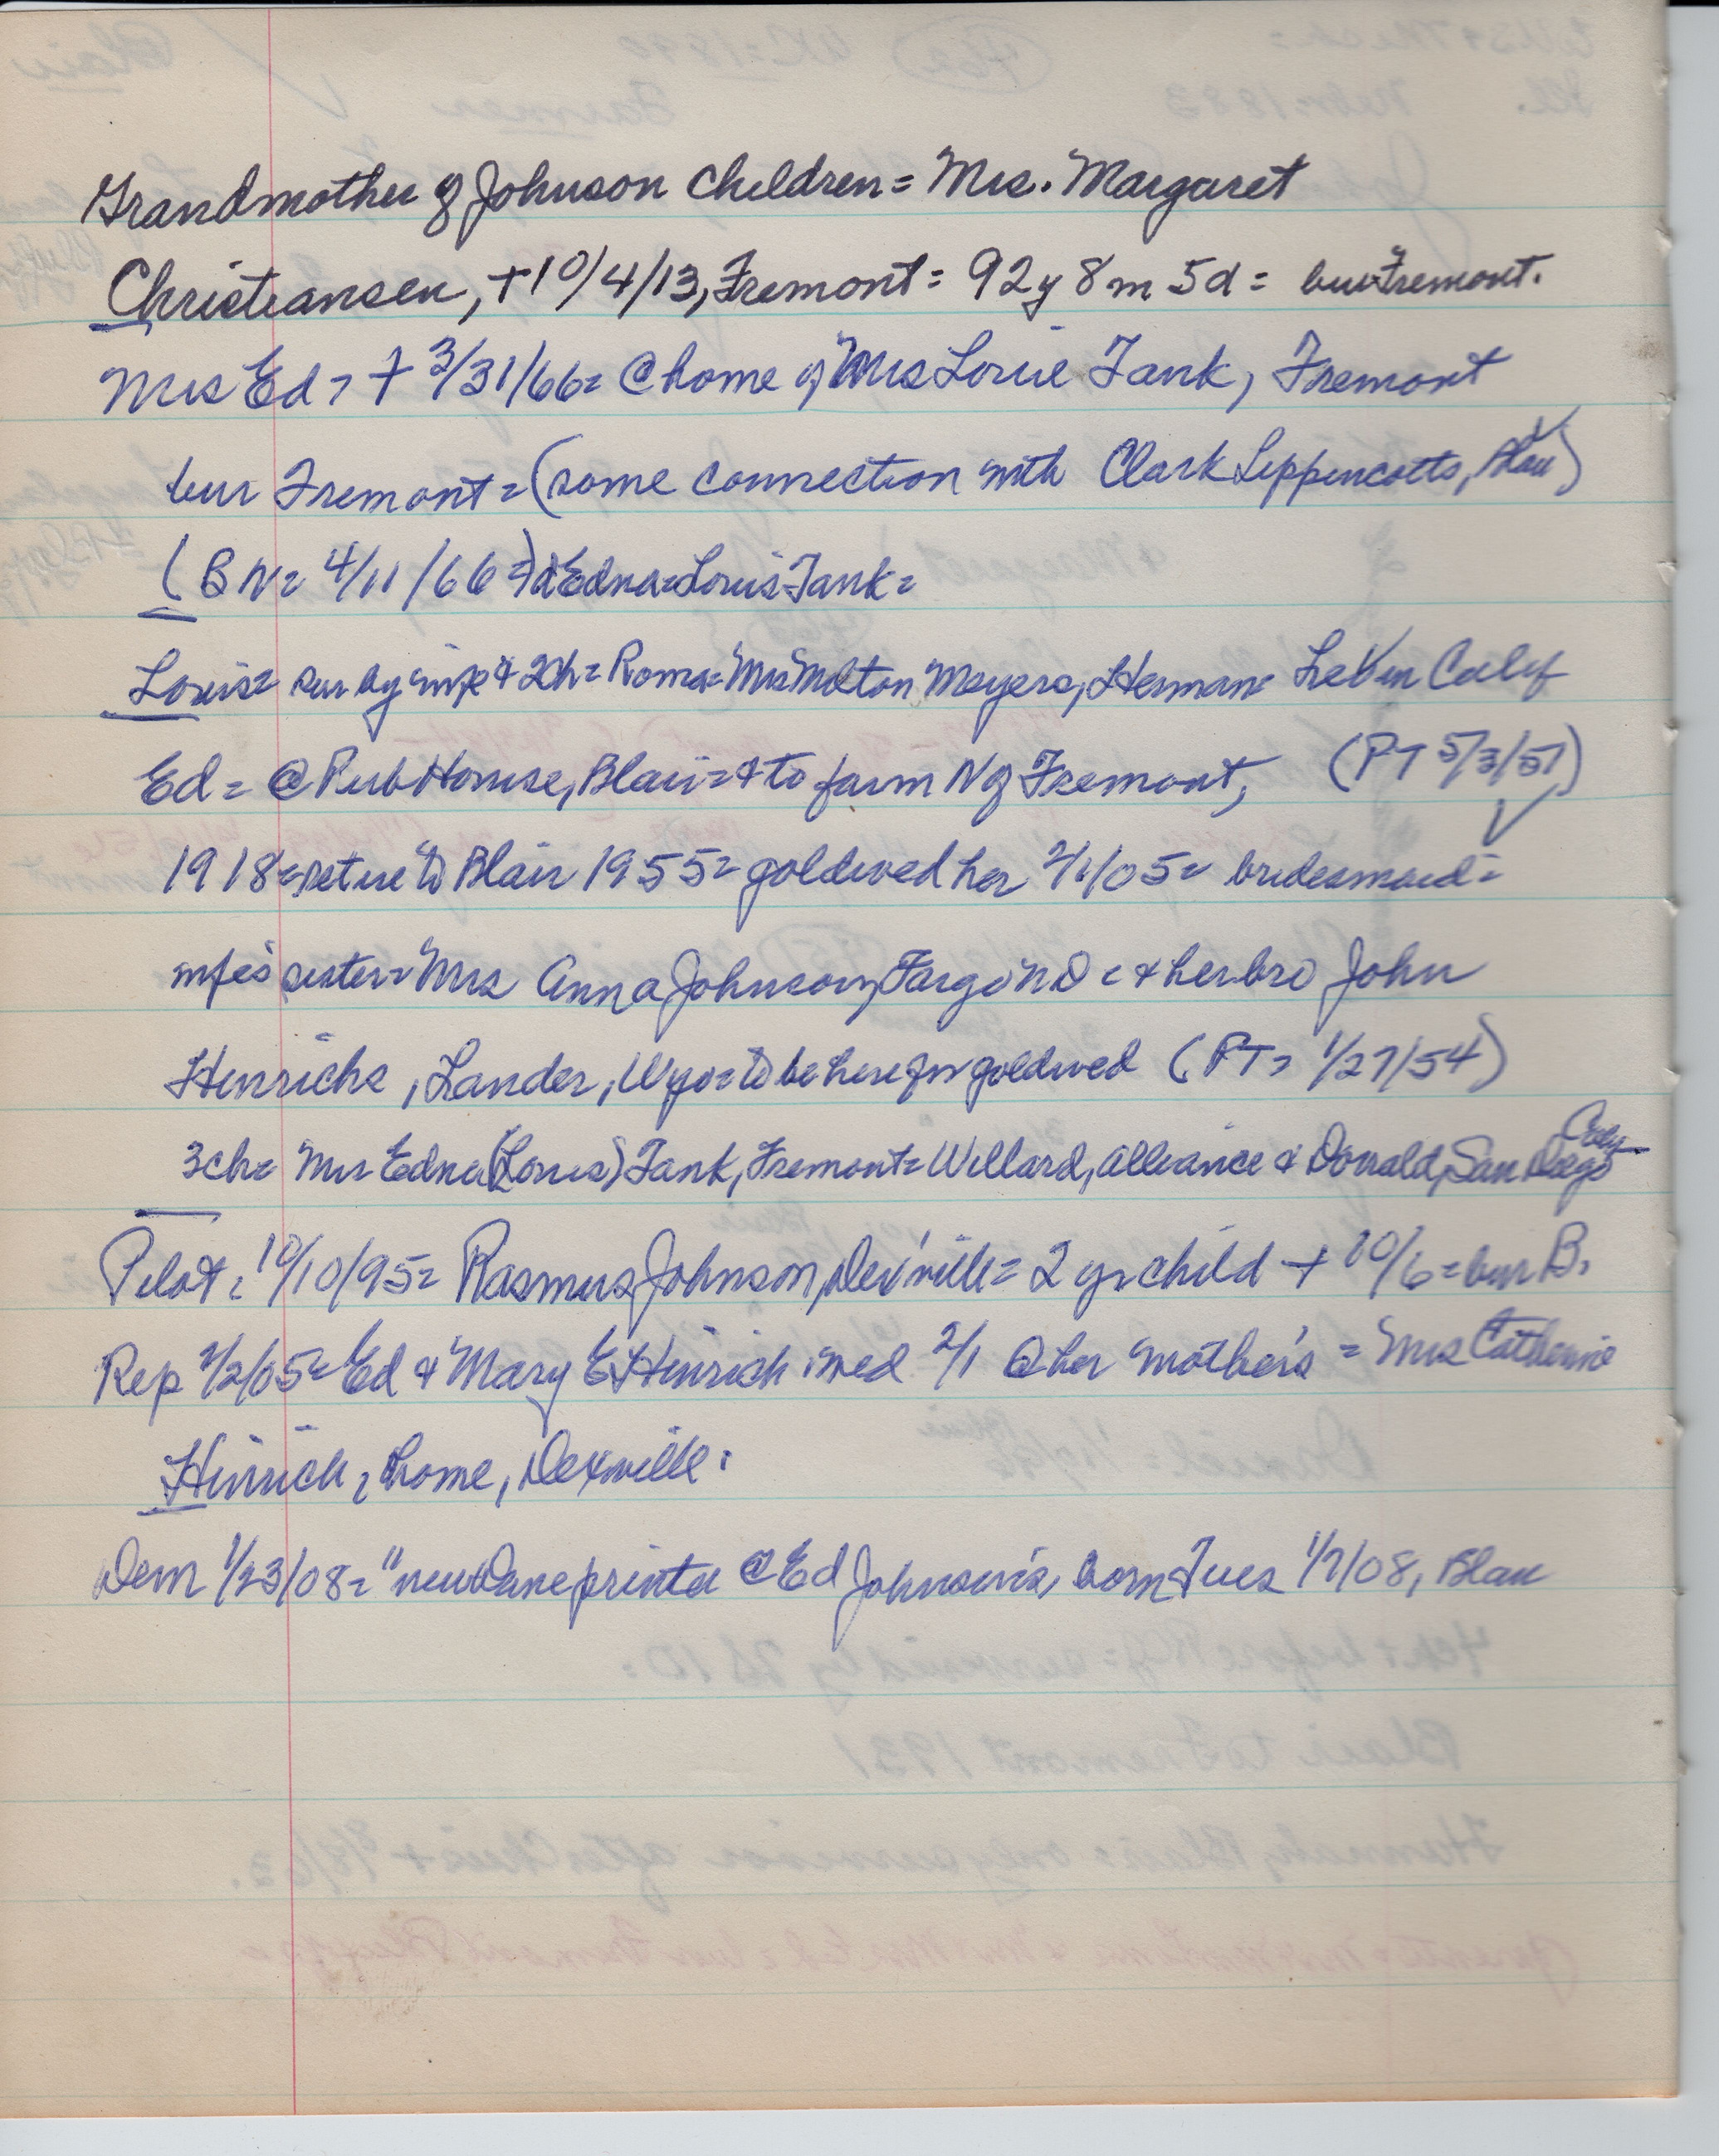 Grandmother of Johnson children = Mrs. Margaret
Christiansen, + 10/4/13, Fremont = 92y 8m 5d = bur Fremont.
Mrs Ed = + 3/31/66 = @ home of Mrs Louie Tank, Fremont
bur Fremont = (some connection with Clark Lippencotts, Blair)
(BN = 4/11/66 =) d Edna = Louis Tank =
Louis = sur by wife & 2ch = Roma = Mrs Milton Meyers, Herman = Calif
Ed = @ Home, Blair = & to farm N of Fremont, (PT 5/3/51)
1918 = retire to Blair 1955 = goldwed her 2/1/05 = bridesmaid =
wife's sister = Mrs Anna Johnson, Fargo ND = & her bro John
Hinrichs, Lander, Wyo = to be here for goldwed (PT = 1/27/54)
3ch = Mrs Edna (Louis) Tank, Fremont = Willard, Alliance & Donald, San Diego Calif
Pilot = 10/10/95 = Rasmus Johnson, Dex'ville = 2 yr child + 10/6 = bur B.
Rep 2/2/05 = Ed & Mary E Hinrich wed 2/1 @ her mother's = Mrs Catherine
Hinrich, home, Dexville.
Dem 1/23/08 = "new Dane printer @ Ed Johnson's, born Tues 1/7/08, Blair